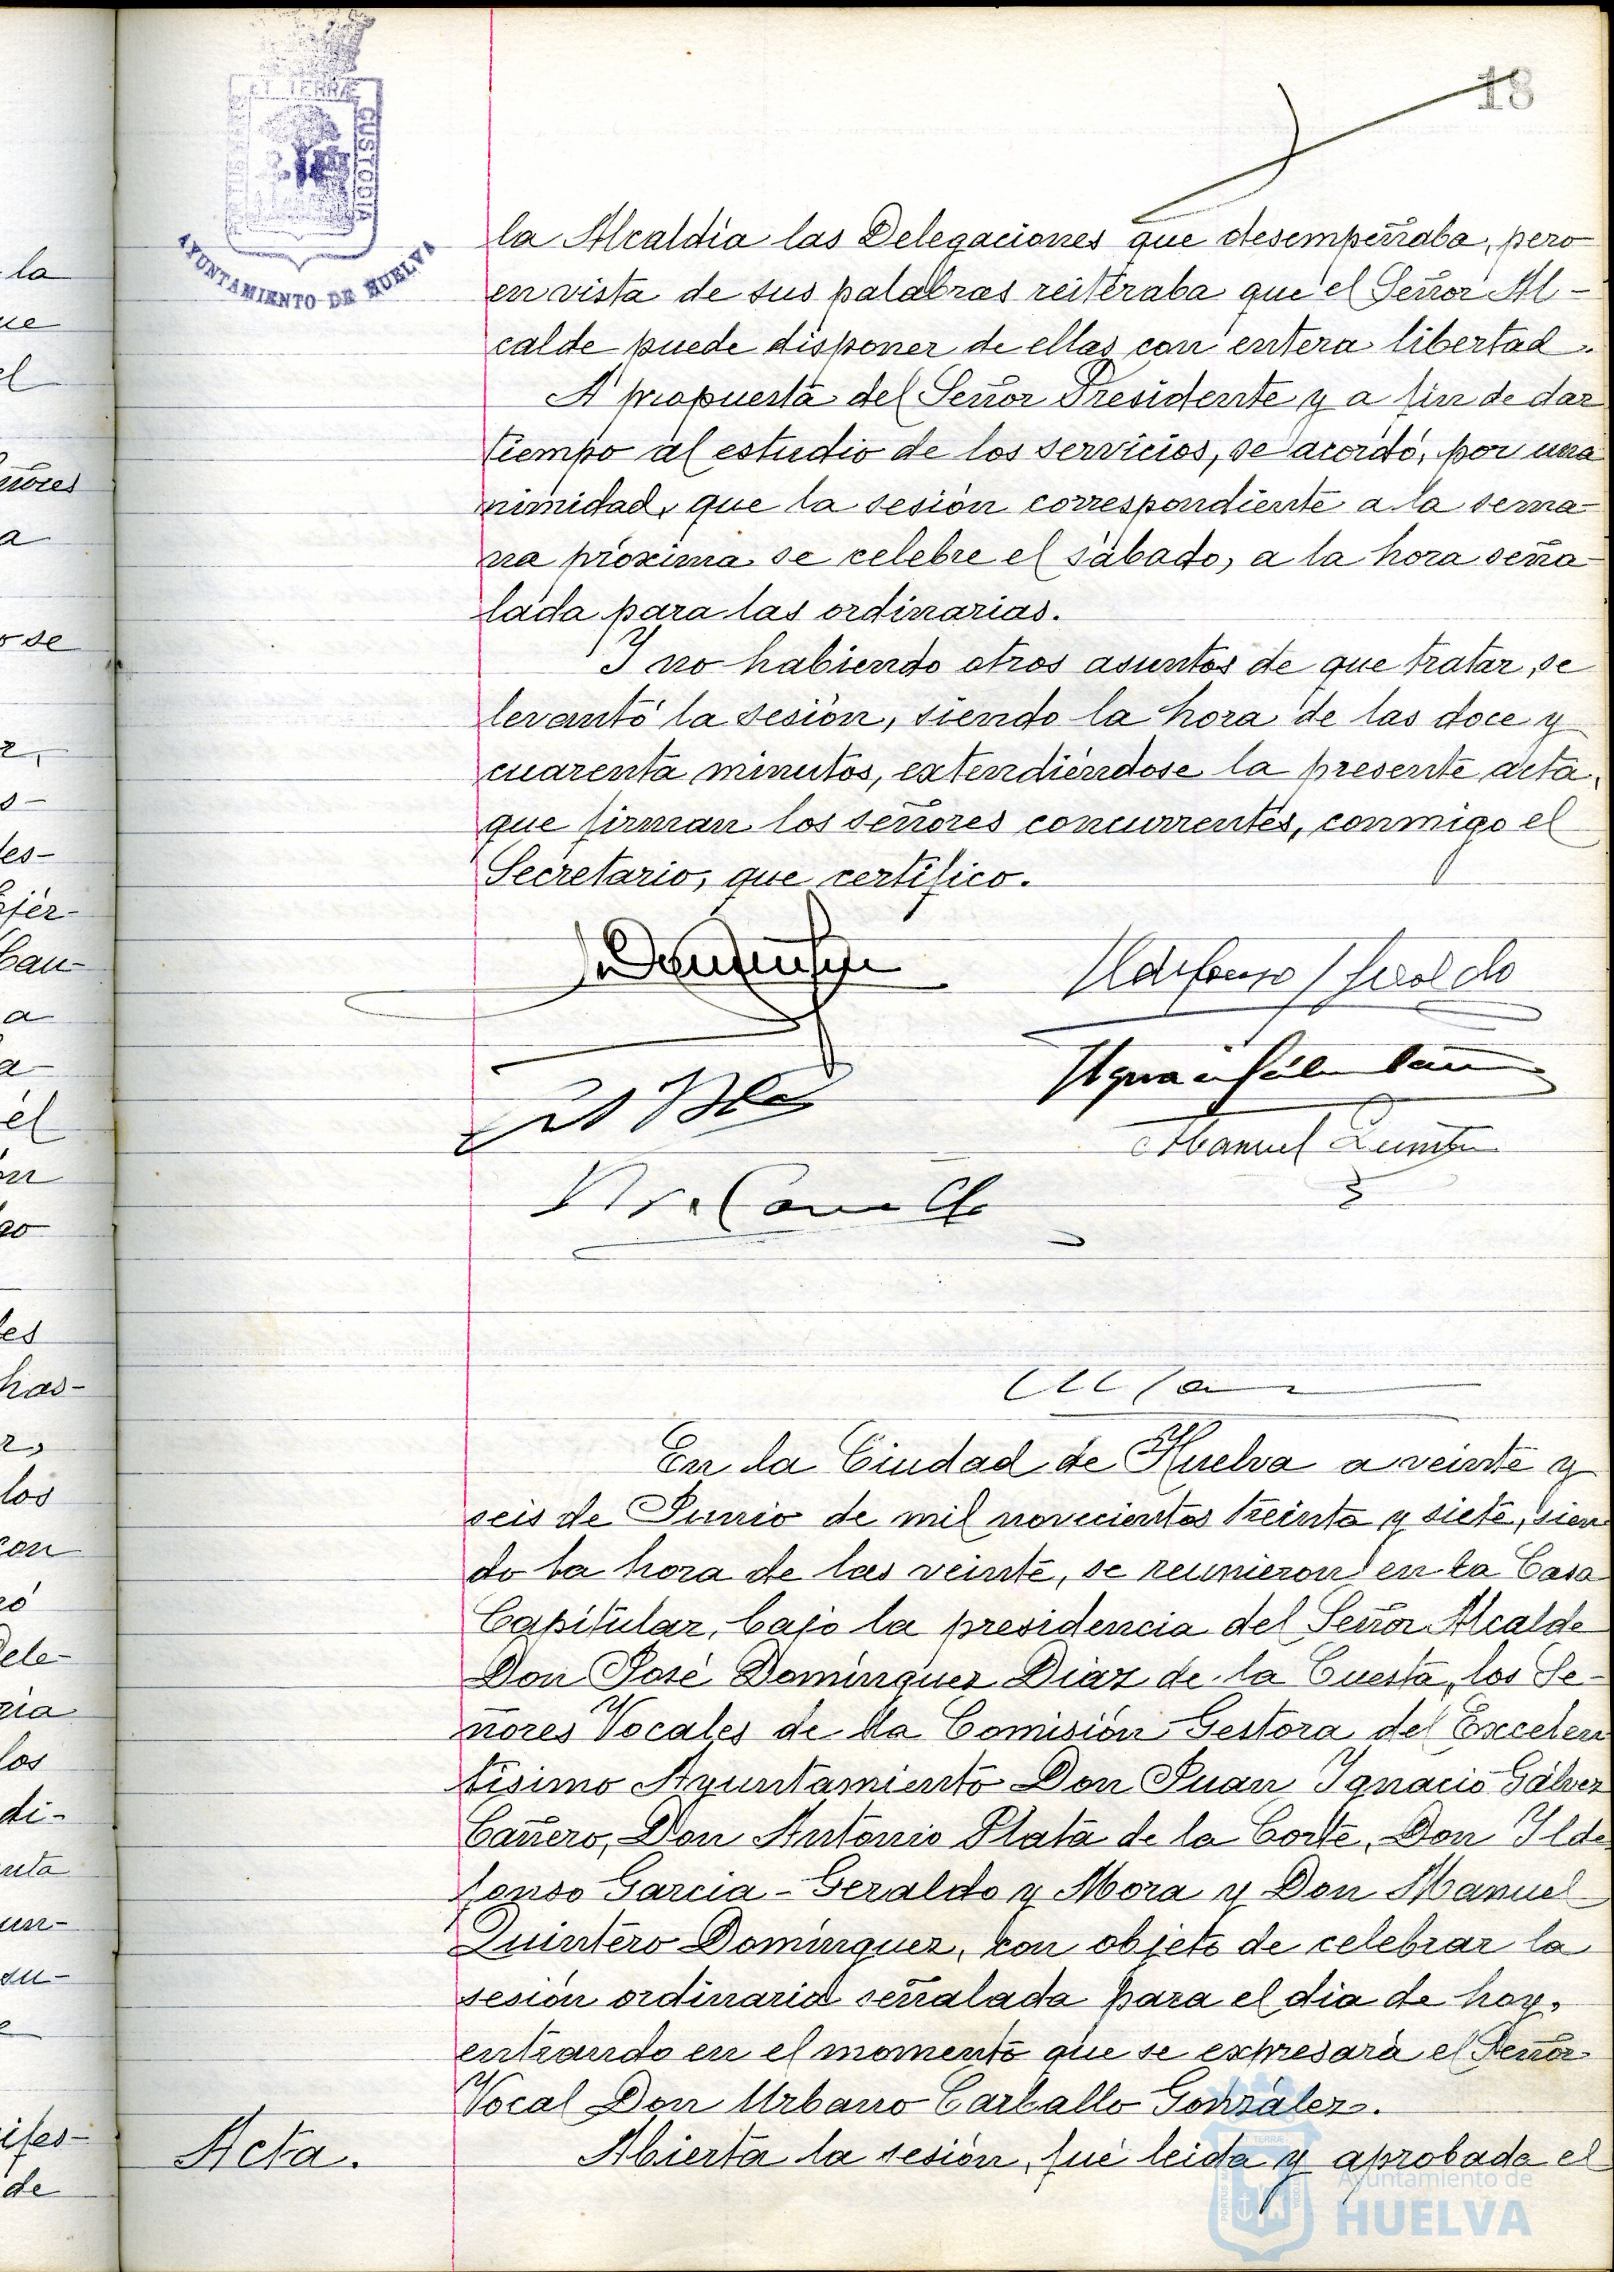 18
ET TERRÆ
CUSTODIA
AYUNTAMIENTO DE HUELVA
la Alcaldía las Delegaciones que desempeñaba, pero
en vista de sus palabras reiteraba que el Señor Al-
calde puede disponer de ellas con entera libertad.
A propuesta del Señor Presidente y a fin de dar
tiempo al estudio de los servicios, se acordó, por una
nimidad, que la sesión correspondiente a la sema-
na próxima se celebre el sábado, a la hora seña-
lada para las ordinarias.
Y no habiendo otros asuntos de que tratar, se
levantó la sesión, siendo la hora de las doce y
cuarenta minutos, extendiéndose la presente acta,
que firman los señores concurrentes, conmigo el
Secretario, que certifico.
Ildefonso Geraldo
Manuel Quintero
En la Ciudad de Huelva a veinte y
seis de Junio de mil novecientos treinta y siete, sien
do la hora de las veinte, se reunieron en la Casa
Capitular, bajo la presidencia del Señor Alcalde
Don José Domínguez Díaz de la Cuesta, los Se-
ñores Vocales de la Comisión Gestora del Excelen
tísimo Ayuntamiento Don Juan Ignacio Gálvez
Cañero, Don Antonio Plata de la Corte, Don Ilde
fonso García-Geraldo y Mora y Don Manuel
Quintero Domínguez, con objeto de celebrar la
sesión ordinaria señalada para el día de hoy,
entrando en el momento que se expresará el Señor
Vocal Don Urbano Carballo González.
Acta.
Abierta la sesión, fué leida y aprobada el
Ayuntamiento de
HUELVA
la
el
a
se
los
a
él
los
de